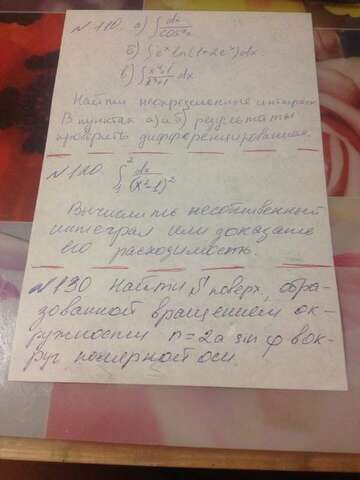 № 110. а) ∫ dx/cos⁴x
б) ∫ eˣ ln(1+2eˣ)dx
в) ∫ dx
Найти неопределенные интегралы
В пунктах а) и б) результаты
проверить дифференцированием.
№120. ∫ dx/(x²-1)²
Вычислить несобственный
интеграл или доказать
его расходимость.
№130 Найти S поверх., обра-
зованной вращением ок-
ружности r=2a sin φ вок-
руг полярной оси.